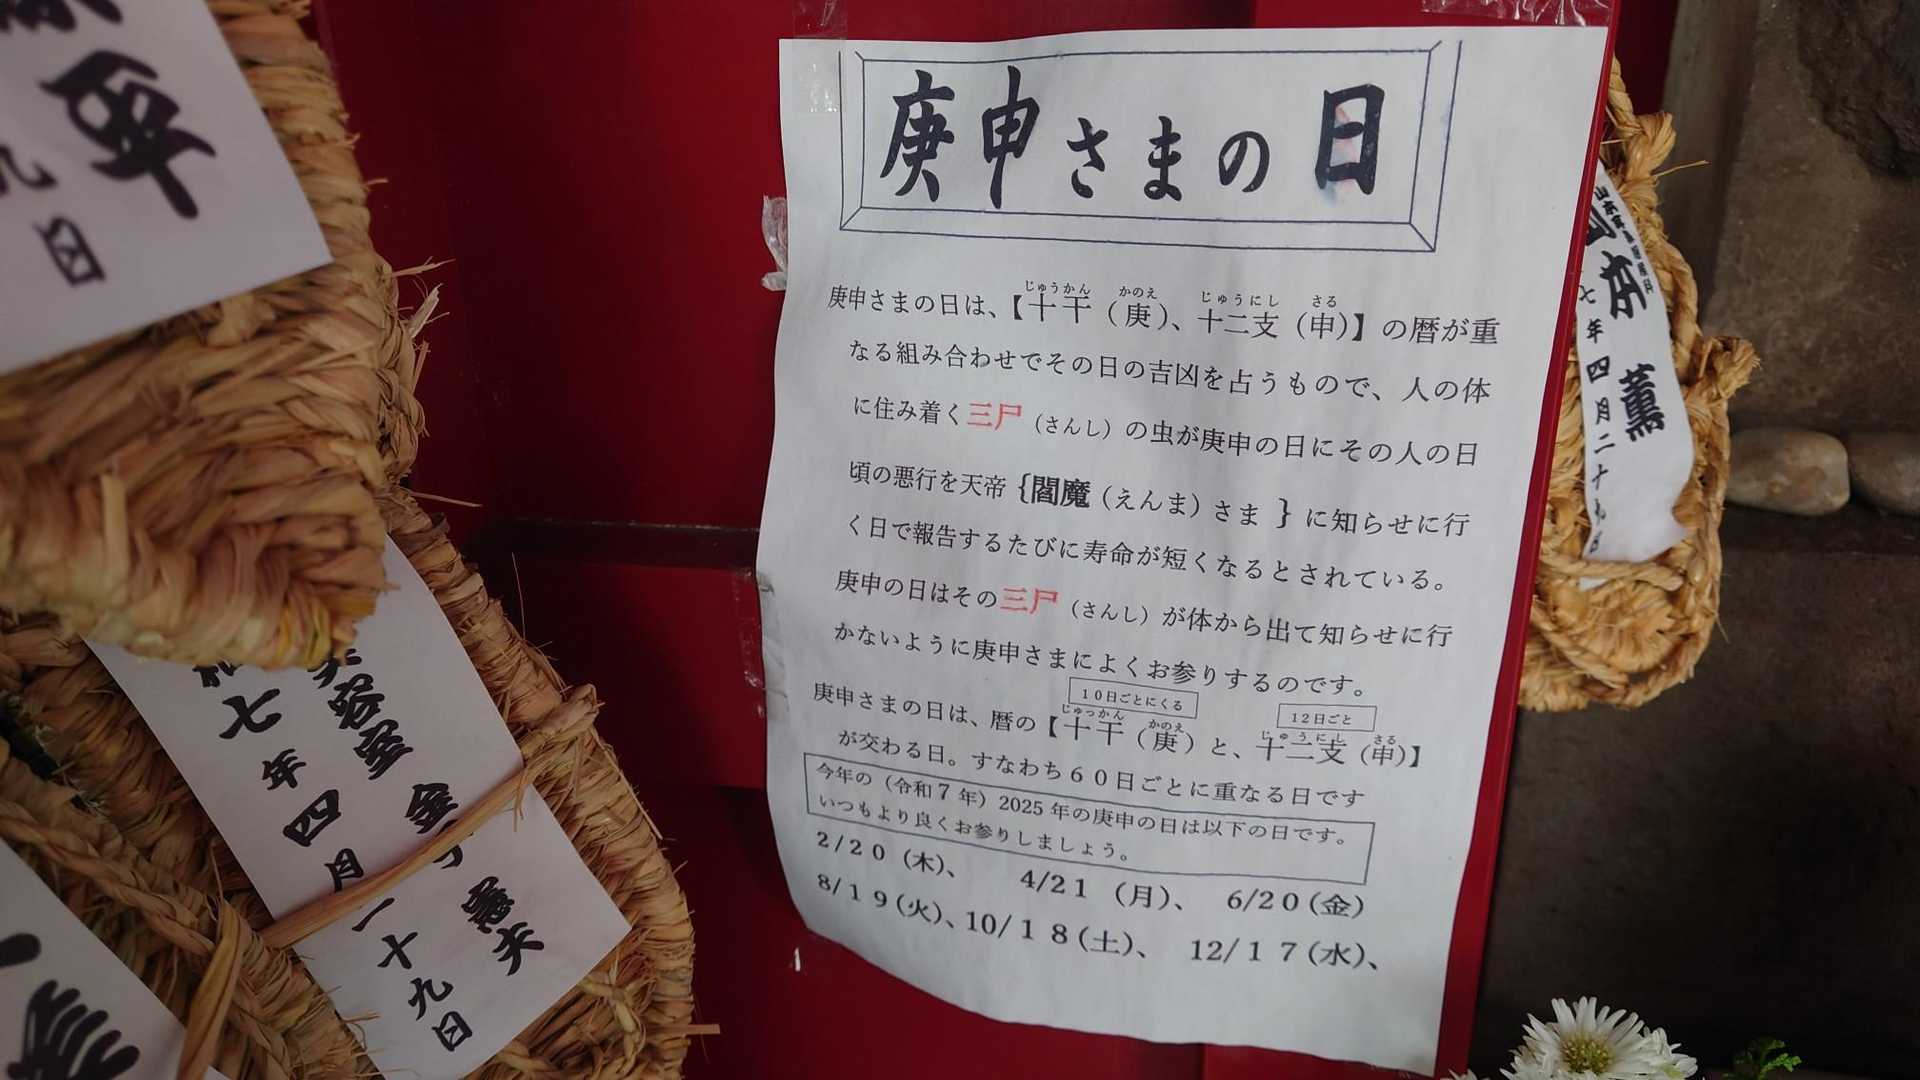 庚申さまの日
じゅうかん かのえ じゅうにし さる
庚申さまの日は、【十干（庚）、十二支（申）】の暦が重
なる組み合わせでその日の吉凶を占うもので、人の体
に住み着く三尸（さんし）の虫が庚申の日にその人の日
頃の悪行を天帝｛閻魔（えんま）さま ｝に知らせに行
く日で報告するたびに寿命が短くなるとされている。
庚申の日はその三尸（さんし）が体から出て知らせに行
かないように庚申さまによくお参りするのです。
１０日ごとにくる １２日ごと
じゅっかん かのえ じゅうにし さる
庚申さまの日は、暦の【十干（庚）と、十二支（申）】
が交わる日。すなわち６０日ごとに重なる日です
今年の（令和７年）2025 年の庚申の日は以下の日です。
いつもより良くお参りしましょう。
2/２０（木）、 4/21 （月）、 6/２０（金）
8/１９（火）、10/１８（土）、 12/１７（水）、
平
九日
美容室 金子 憲夫
和七年四月二十九日
山本 薫
七年四月二十九日